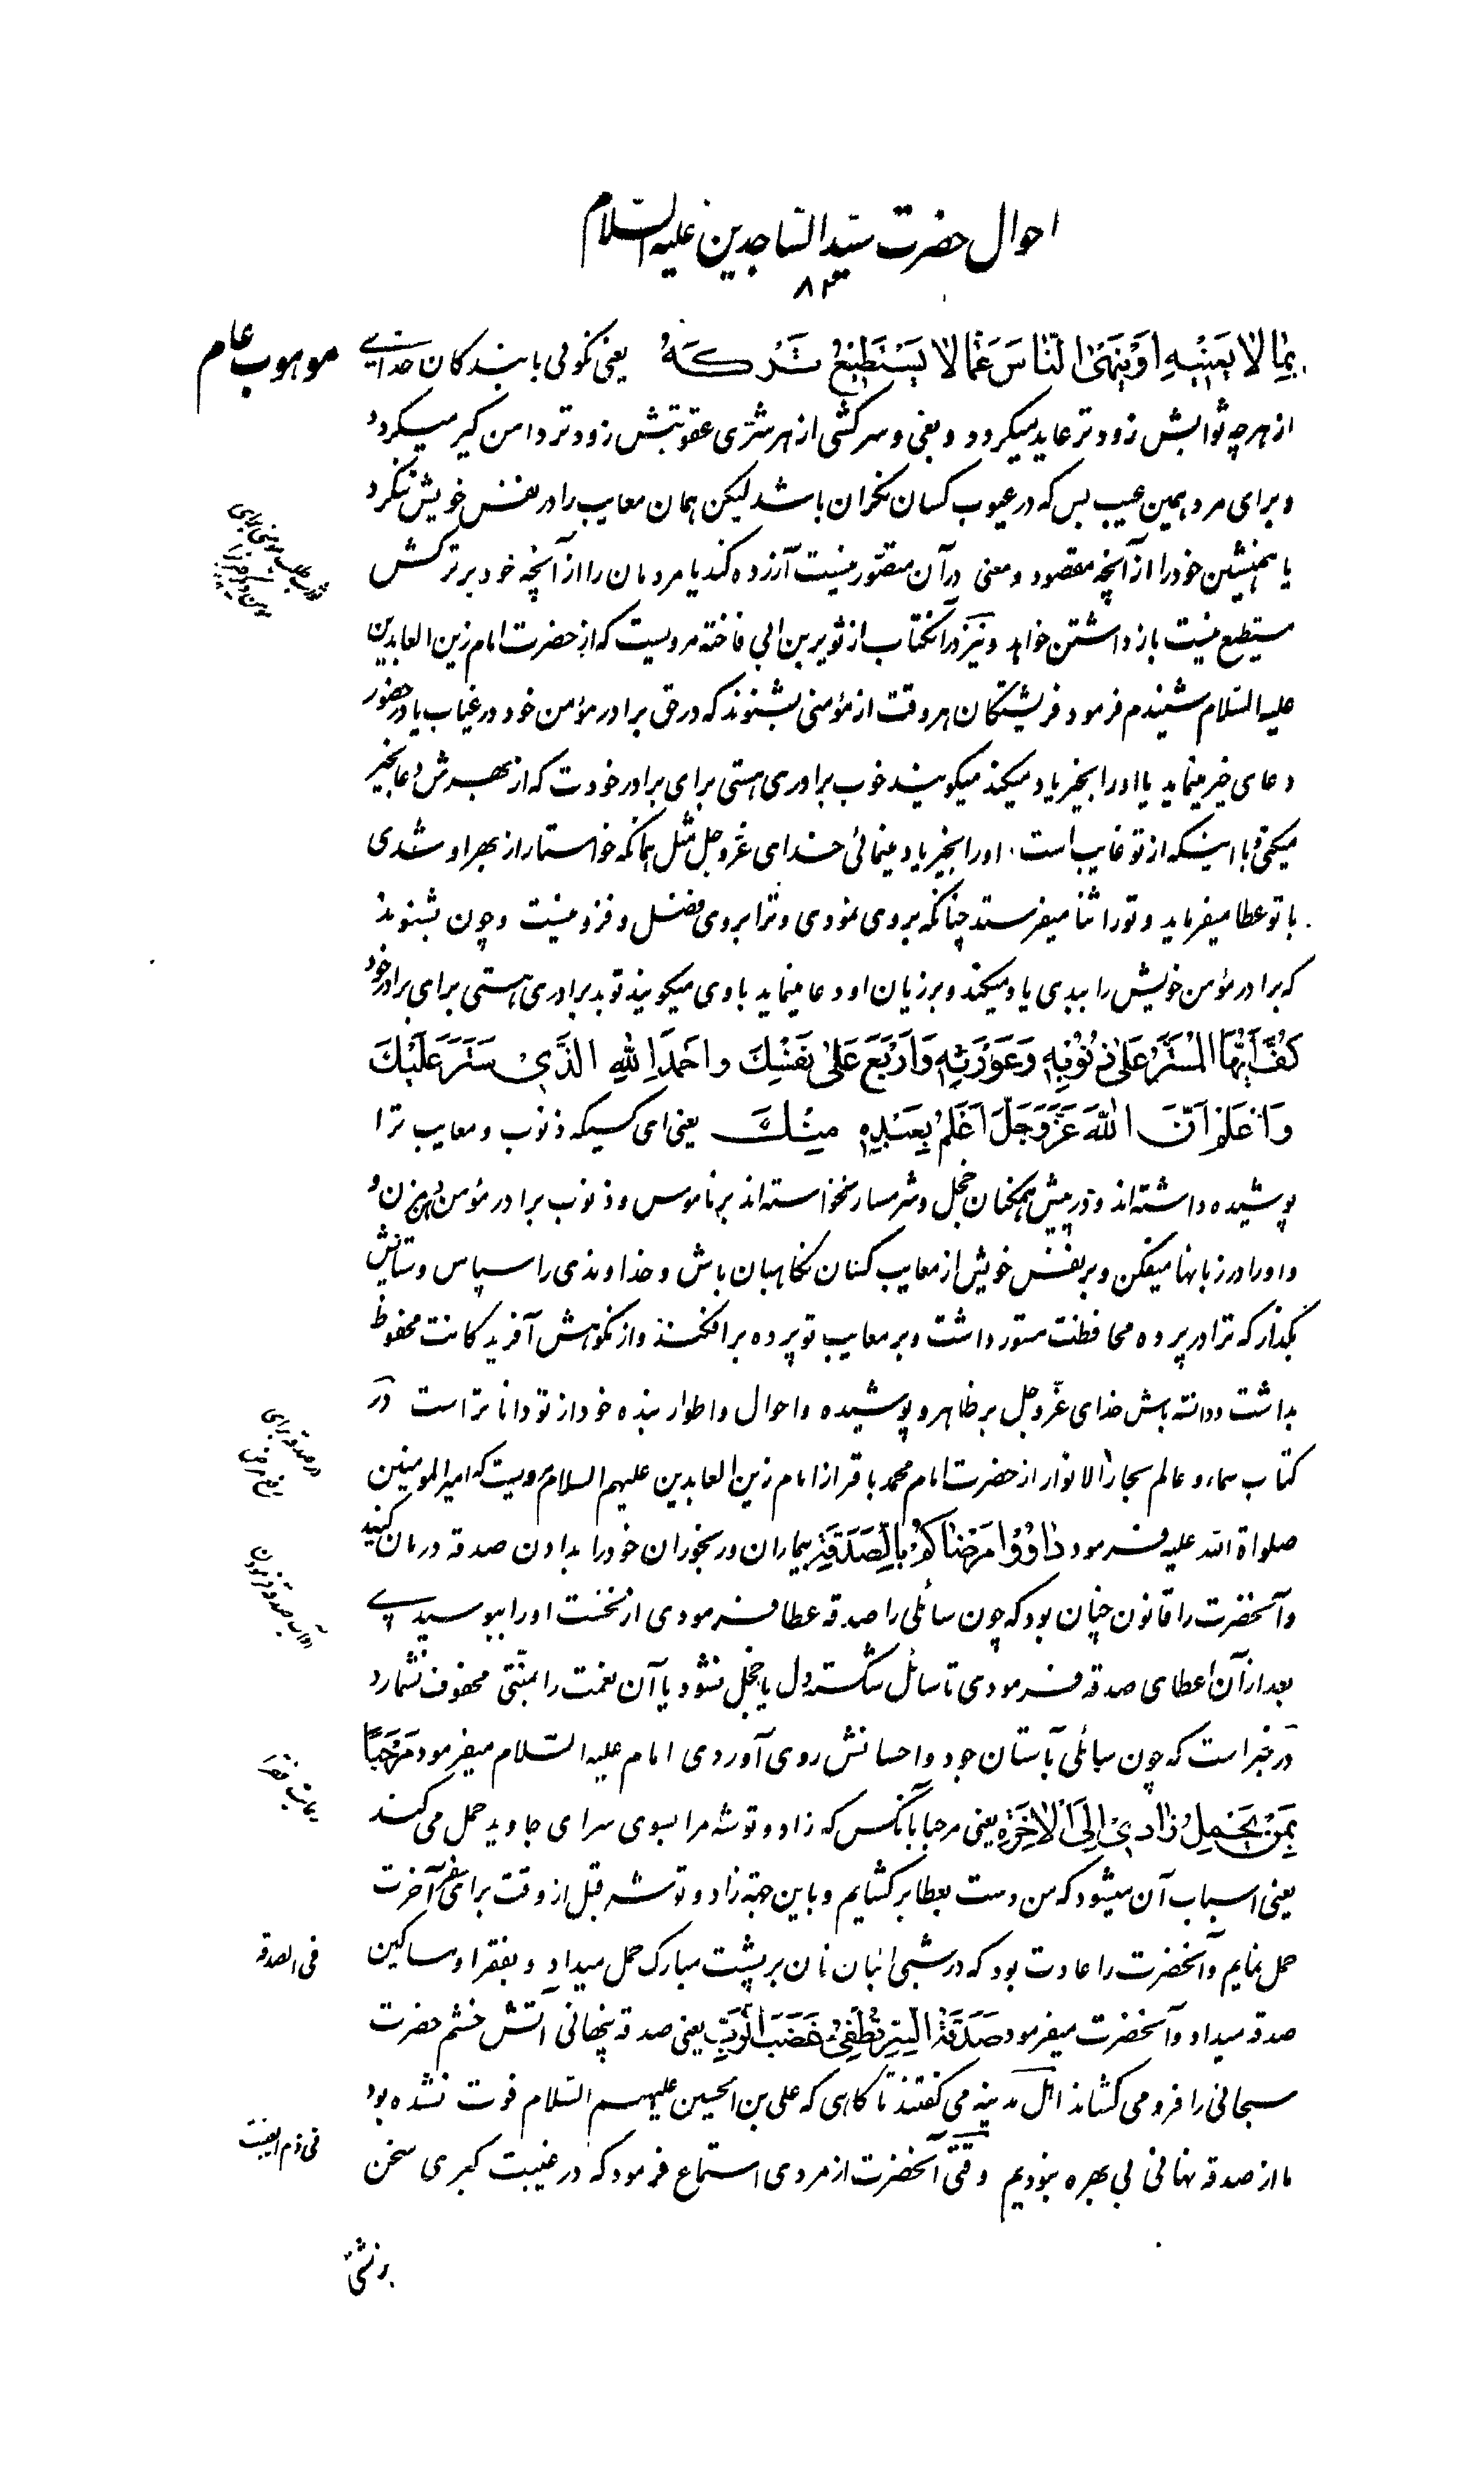 احوال حضرت سید الساجدین علیه السّلام
۸۳
موهوب عام
بِمَا لَا يَعْنِيهِ اَوْ يَنْهَى النّاسَ عَمّا لا يَسْتَطيعُ تَرْكَهُ یعنی نکوئی با بندکان خدای
از هر چه ثوابش زودتر عاید میکردد و بغی و سرکشی از هر شرّی عقوبتش زودتر دامن کیر میکردد
و برای مرد همین عیب بس که در عیوب کسان نکران باشد لیکن همان معایب را در نفس خویش ننکرد
یا همنشین خود را از آنچه مقصود و معنی در آن متصّور نیست آزرده کند یا مردمان را از آنچه خود بر ترکش
مستطیع نیست باز داشتن خواهد و نیز در آنکتاب از ثویر بن ابی فاخته مرویست که از حضرت امام زین العابدین
علیه السّلام شنیدم فرمود فریشتکان هر وقت از مؤمنی بشنوند که در حق برادر مؤمن خود در غیاب یا در حضور
دعای خیر مینماید یا او را بخیر یاد میکند میکویند خوب برادری هستی برای برادر خودت که از بهرش دعا بخیر
میکنی و با اینکه از تو غایب است او را بخیر یاد مینمائی خدای عزّوجل مثل همانکه خواستار از بهر او شدی
با تو عطا میفرماید و تو را ثنا میفرستد چنانکه بر وی نمودی و ترا بر وی فضل و فزونیست و چون بشنوند
که برادر مؤمن خویش را ببدی یاد میکند و بر زیان او دعا مینماید با وی میکویند تو بد برادری هستی برای برادر خود
كُفَّ اَيُّهَا الْمُسَتَّرُ عَلى ذُنُوبِهِ وَعَوْرَتِهِ وَارْبَعْ عَلى نَفْسِكَ واحْمَدِ اللهِ الَّذي سَتَرَ عَلَيْكَ
وَاعْلَمْ اَنَّ اللهَ عَزَّوَجَلَّ اَعْلَمُ بِعَبْدِهِ مِنْكَ یعنی ای کسیکه ذنوب و معایب ترا
پوشیده داشته اند و در پیش همکنان خجل و شرمسار نخواسته اند بر ناموس و ذنوب برادر مؤمن
و او را در زبانها میفکن و بر نفس خویش از معایب کسان نکاهبان باش و خداوندی را سپاس و ستایش
بکذار که ترا در پرده محافظت مستور داشت و بر معایب تو پرده برافکند و از نکوهش آفریدکانت محفوظ
بداشت و دانسته باش خدای عزّوجل بر ظاهر و پوشیده و احوال و اطوار بنده خود از تو داناتر است در
کتاب سماء و عالم بحار الانوار از حضرت امام محمد باقر از امام زین العابدین علیهم السلام مرویست که امیر المومنین
صلواة الله علیه فرمود داوُوا مَرْضاكُمْ بِالصَّدَقَةِ بیماران و رنجوران خود را بدادن صدقه درمان کنید
و آنحضرت را قانون چنان بود که چون سائلی را صدقه عطا فرمودی از نخست او را ببوسیدی
بعد از آن اعطای صدقه فرمودی تا سائل شکسته دل یا خجل نشود یا آن نعمت را بمنّتی محفوف نشمارد
در خبر است که چون سائلی بآستان جود و احسانش روی آوردی امام علیه السّلام میفرمود مَرْحَباً
بِمَنْ يَحْمِلُ زادي اِلَى الْاخِرَةِ یعنی مرحبا بآنکس که زاد و توشه مرا بسوی سرای جاوید حمل می کند
یعنی اسباب آن میشود که من دست بعطا برکشایم و باین جهة زاد و توشه قبل از وقت برای سفر آخرت
حمل نمایم و آنحضرت را عادت بود که در شبی انبان نان بر پشت مبارک حمل میداد و بفقرا و مساکین
صدقه میداد و آنحضرت میفرمود صَدَقَةُ السِّرِّ تُطْفِيءُ غَضَبَ الرَّبِّ یعنی صدقه پنهانی آتش خشم حضرت
سبحانی را فرو می کشاند اهل مدینه می کفتند تا کاهی که علی بن الحسین علیهم السّلام فوت نشده بود
ما از صدقه نهانی بی بهره نبودیم وقتی آنحضرت از مردی استماع فرمود که در غیبت کبری سخن
در صدقه برای
رفع مرض
آداب صدقه
فی الصدقه
فی ذم الغیبت